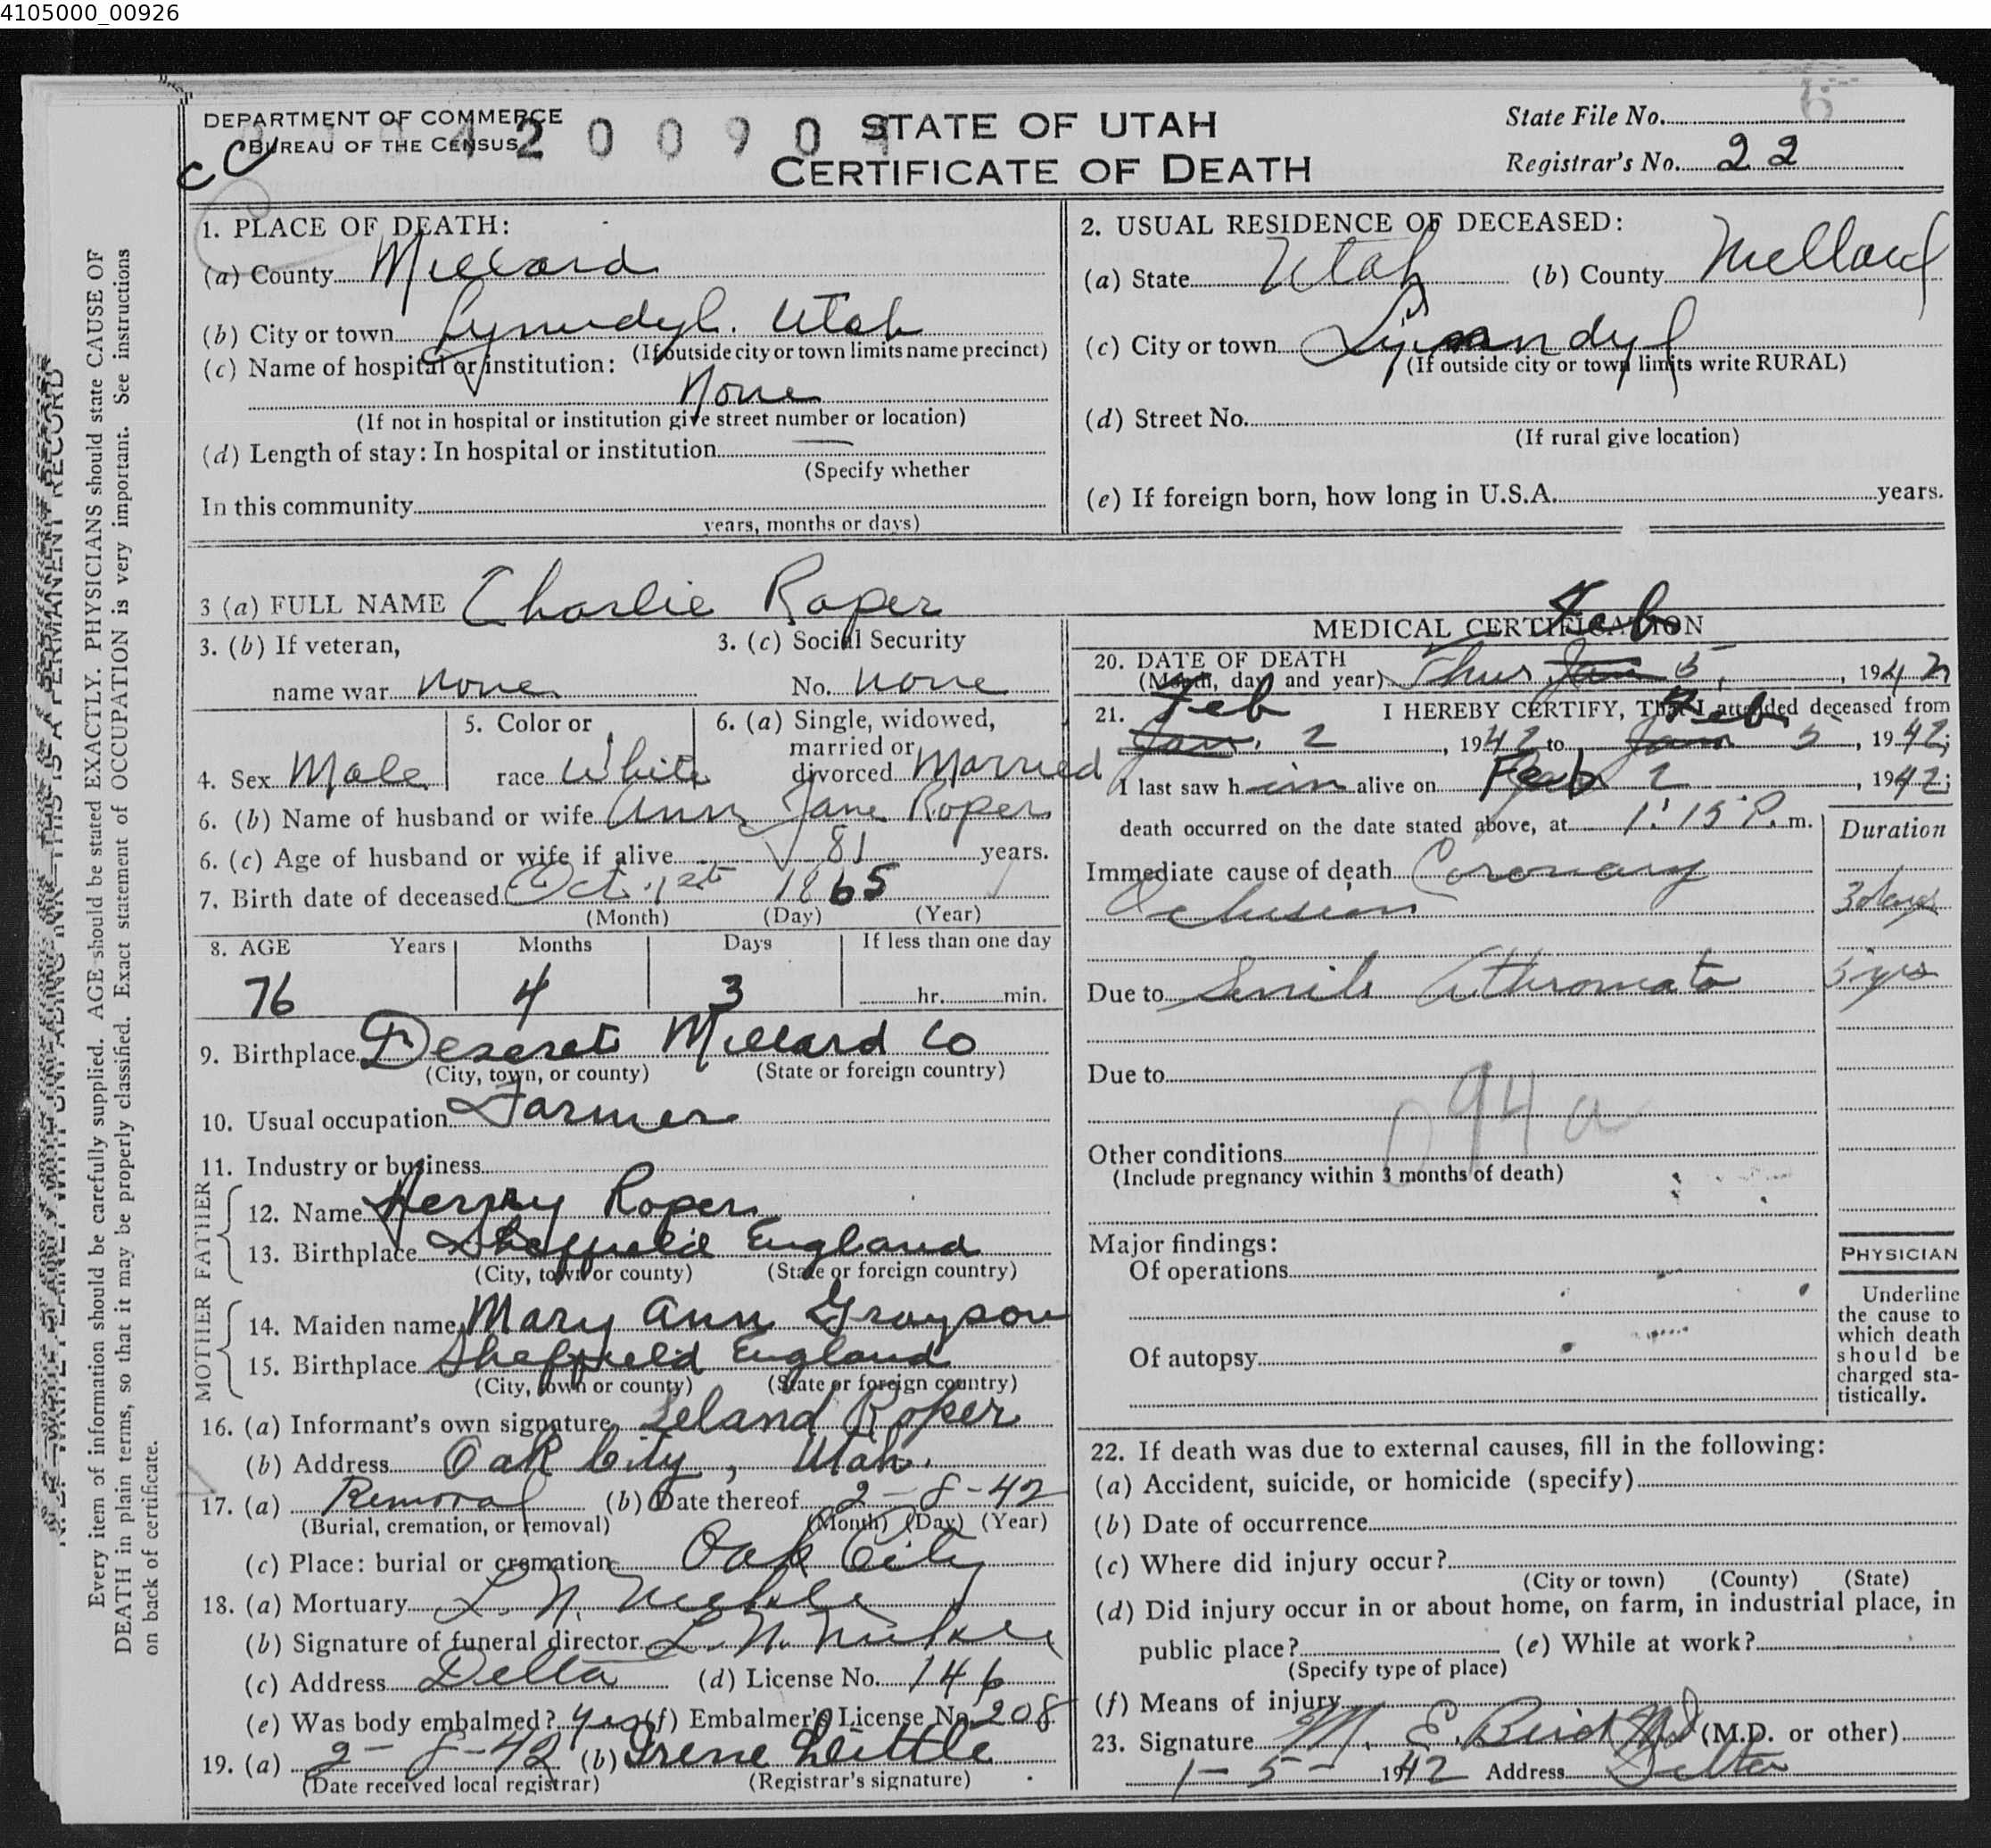 4105000_00926
DEPARTMENT OF COMMERCE
BUREAU OF THE CENSUS
STATE OF UTAH
CERTIFICATE OF DEATH
State File No.
Registrar's No. 22
1. PLACE OF DEATH:
(a) County Millard
(b) City or town Lynndyl. Utah
(If outside city or town limits name precinct)
(c) Name of hospital or institution:
None
(If not in hospital or institution give street number or location)
(d) Length of stay: In hospital or institution —
(Specify whether
In this community
years, months or days)
2. USUAL RESIDENCE OF DECEASED:
(a) State Utah (b) County Millard
(c) City or town Lynndyl
(If outside city or town limits write RURAL)
(d) Street No.
(If rural give location)
(e) If foreign born, how long in U.S.A. years.
3 (a) FULL NAME Charlie Roper
3. (b) If veteran,
name war none
3. (c) Social Security
No. none
4. Sex Male
5. Color or
race White
6. (a) Single, widowed,
married or
divorced Married
6. (b) Name of husband or wife Ann Jane Roper
6. (c) Age of husband or wife if alive 81 years.
7. Birth date of deceased Oct. 1st 1865
(Month) (Day) (Year)
8. AGE Years Months Days If less than one day
76 4 3 hr. min.
9. Birthplace Deseret Millard Co
(City, town, or county) (State or foreign country)
10. Usual occupation Farmer
11. Industry or business
FATHER
12. Name Henry Roper
13. Birthplace Sheffield England
(City, town or county) (State or foreign country)
MOTHER
14. Maiden name Mary Ann Grayson
15. Birthplace Sheffield England
(City, town or county) (State or foreign country)
16. (a) Informant's own signature Leland Roper
(b) Address Oak City, Utah.
17. (a) Removal (b) Date thereof 2-8-42
(Burial, cremation, or removal) (Month) (Day) (Year)
(c) Place: burial or cremation Oak City
18. (a) Mortuary L. N.
(b) Signature of funeral director L. N.
(c) Address Delta (d) License No. 146
(e) Was body embalmed? yes (f) Embalmer's License No. 208
19. (a) 2-8-42 (b) Irene Little
(Date received local registrar) (Registrar's signature)
MEDICAL CERTIFICATION
20. DATE OF DEATH
(Month, day and year) Thur Jan Feb 5, 1942
21. I HEREBY CERTIFY, That I attended deceased from
Jan. Feb 2, 1942 to Jan Feb 5, 1942;
I last saw him alive on Feb 2, 1942;
death occurred on the date stated above, at 1:15 P. m.
Duration
Immediate cause of death Coronary
Oclusion 3 days
Due to Senile Atheromata 5 yrs
Due to
94a
Other conditions
(Include pregnancy within 3 months of death)
Major findings:
Of operations
Of autopsy
PHYSICIAN
Underline
the cause to
which death
should be
charged sta-
tistically.
22. If death was due to external causes, fill in the following:
(a) Accident, suicide, or homicide (specify)
(b) Date of occurrence
(c) Where did injury occur?
(City or town) (County) (State)
(d) Did injury occur in or about home, on farm, in industrial place, in
public place? (e) While at work?
(Specify type of place)
(f) Means of injury
23. Signature M. E. Bird MD (M.D. or other)
1-5- 1942 Address Delta
Every item of information should be carefully supplied. AGE should be stated EXACTLY. PHYSICIANS should state CAUSE OF
DEATH in plain terms, so that it may be properly classified. Exact statement of OCCUPATION is very important. See instructions
on back of certificate.